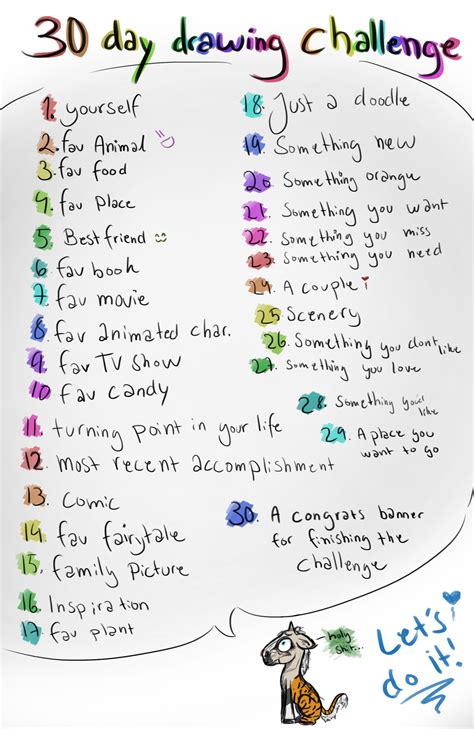 30 day drawing challenge
1. yourself
2. fav Animal
3. fav food
4. fav Place
5. Best friend
6. fav book
7. fav movie
8. fav animated char.
9. fav TV show
10 fav candy
11. turning point in your life
12. most recent accomplishment
13. Comic
14 fav fairytale
15. family Picture
16. Inspiration
17 fav plant
18. Just a doodle
19. Something new
20. Something orange
21. Something you want
22. Something you miss
23. Something you need
24. A couple
25 Scenery
26. Something you dont like
27. Something you love
28. Something you'd
like
29. A place you
want to go
30. A congrats banner
for finishing the
challenge
holy
shit...
Let's
do it!